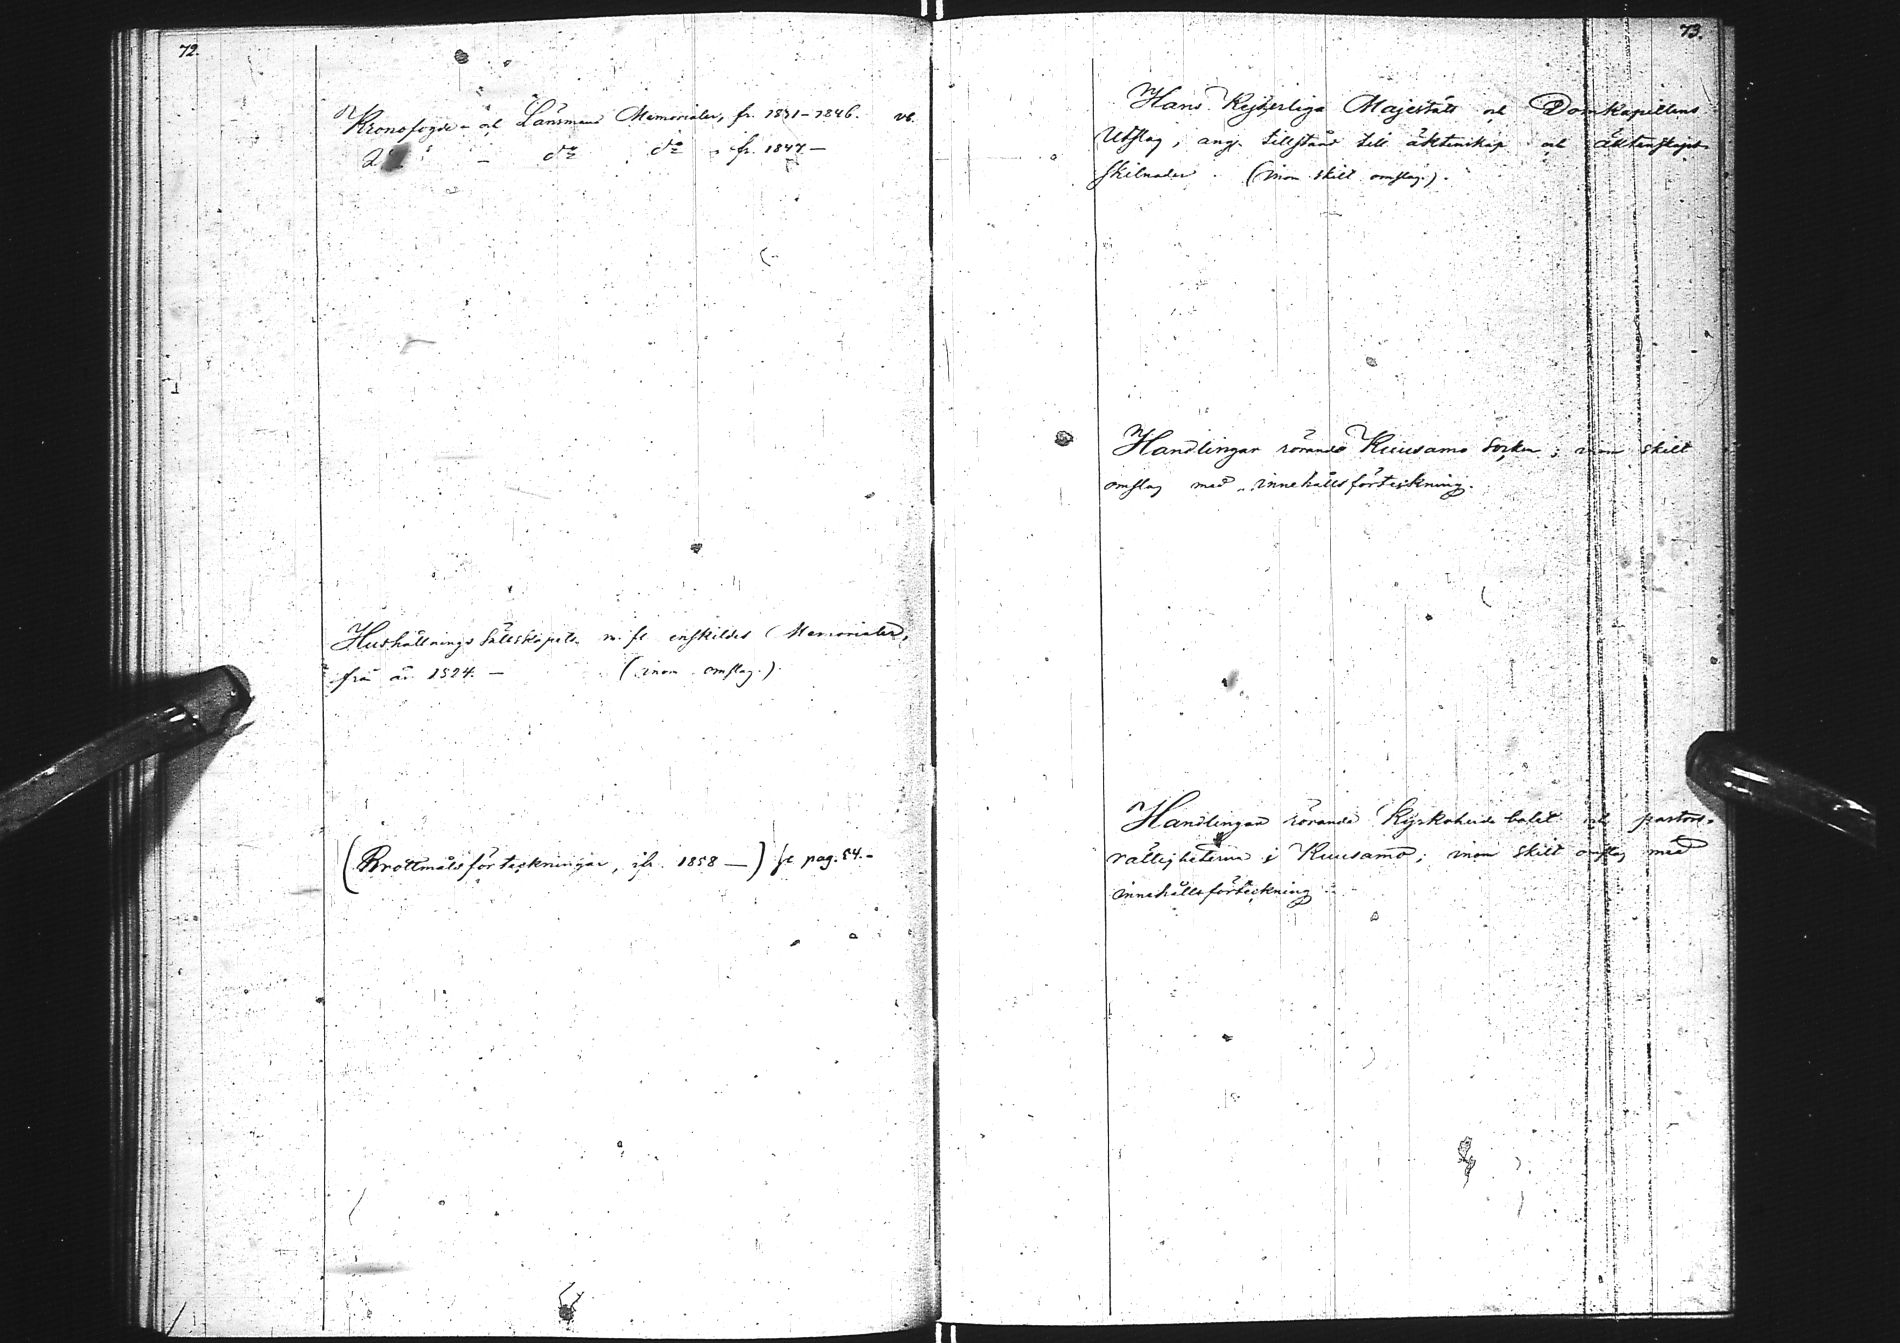 72.
Kronofogde- och Länsmans Memorialer, fr. 1831-1846.
do - do do fr. 1847 -
Hushållnings Sällskapets m. fl. enskildes Memorialer,
från år 1824. - (inom omslag.)
(Brottmålsförteckningar, fr. 1858 —) se pag. 54.-
73.
Hans Kejserliga Majestäts och Domkapitlens
Utslag, ang. tillstånd till äktenskap och äktenskaps-
skilnader. (inom skilt omslag.).
Handlingar rörande Kuusamo Socken; inom skilt
omslag med innehållsförteckning.
Handlingar rörande Kyrkoherde bolet och pastors-
rättigheterna i Kuusamo; inom skilt omslag med
innehållsförteckning